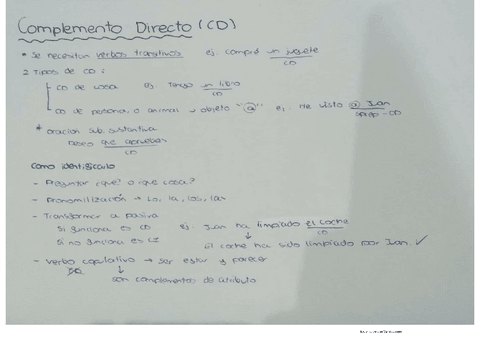 Complemento Directo (CD)
* Se necesitan verbos transitivos ej: compré un juguete
CD
2 Tipos de CD:
CD de cosa ej: Tengo un libro
CD
CD de persona, o animal → objeto "a" ej: He visto a Juan
CD
* oración sub. sustantiva
Deseo que apruebes
CD
Cómo identificarlo
- Preguntar ¿qué? o que cosa?
- Pronomilización → Lo, la, los, las
- Transformar a pasiva
Si funciona es CD ej: Juan ha limpiado el coche
CD
Si no funciona es CI El coche ha sido limpiado por Juan. ✓
- Verbo copulativo → ser estar y parecer
son complementos de atributo